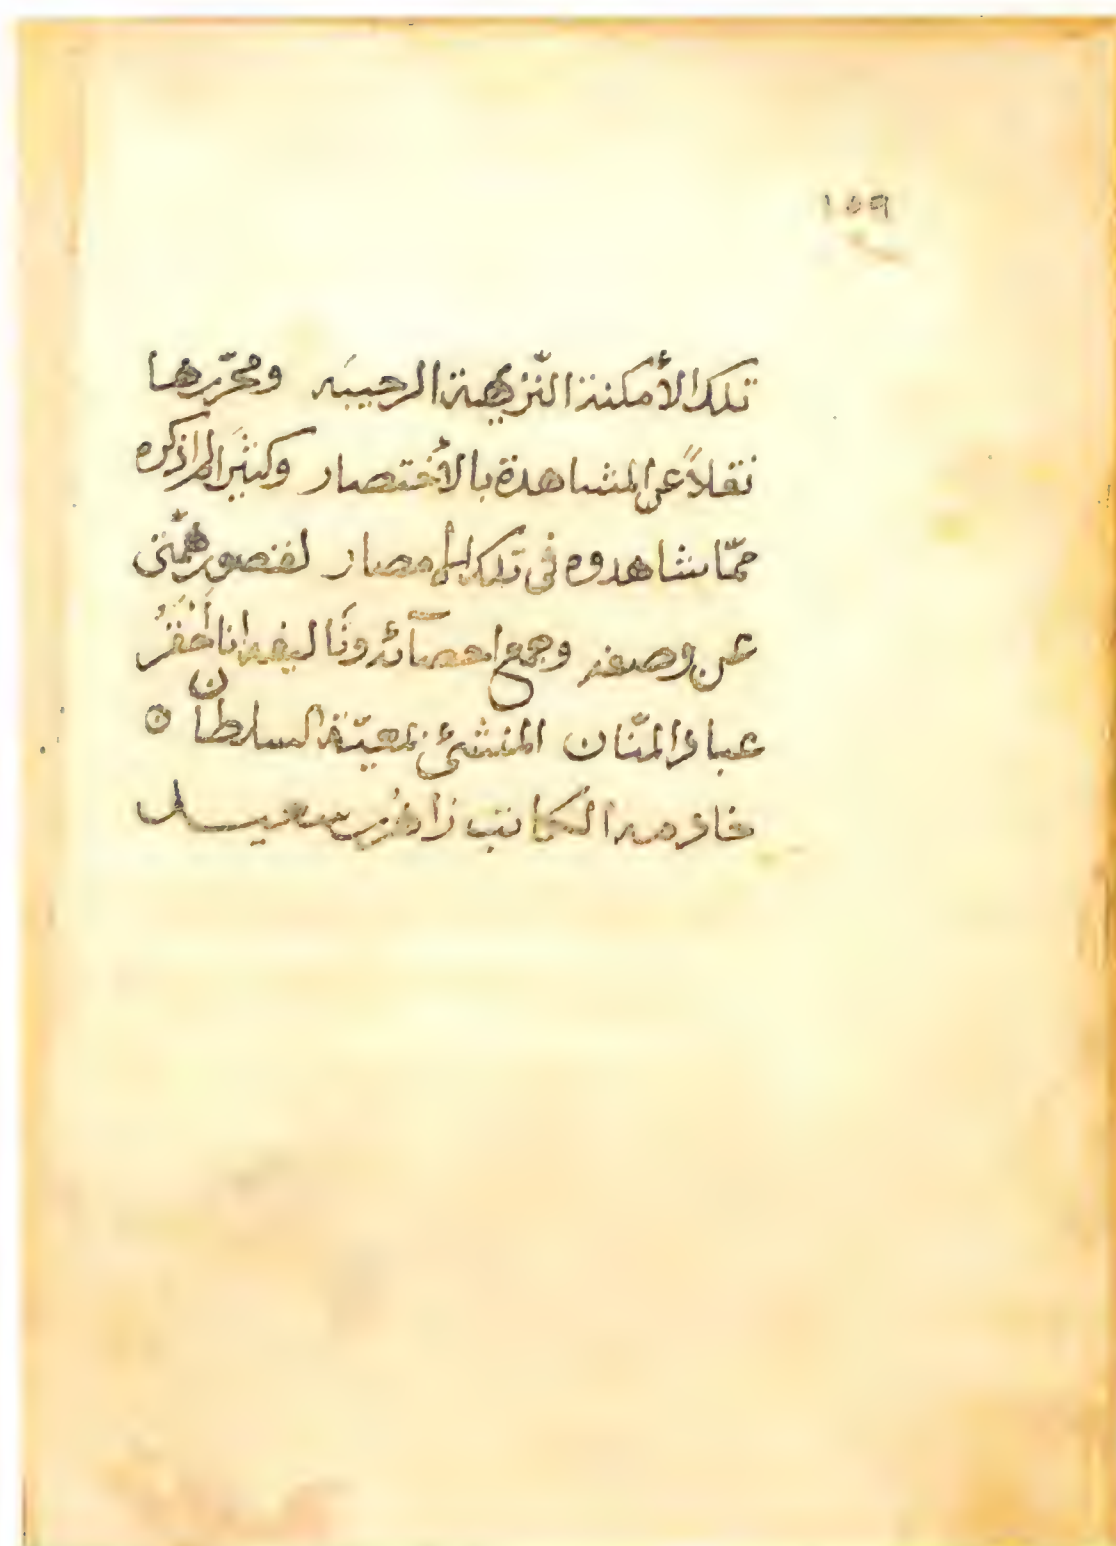 ١٥٩
تلك الأمكنة النّزيهة الرحيبَه ومحرّرها
نقلاً عن المشاهدة بالأختصار وكثيَراً لم اذكره
ممّا شاهدوه في تلك الامصار لقصور همّتي
عن وصفه وجمع احصآئه وتَأليفه انا أحْقَرُ
عباد المنّان المنشئ بمعيّة السلطان
خادمه الكاتب زاهر بن سعيد